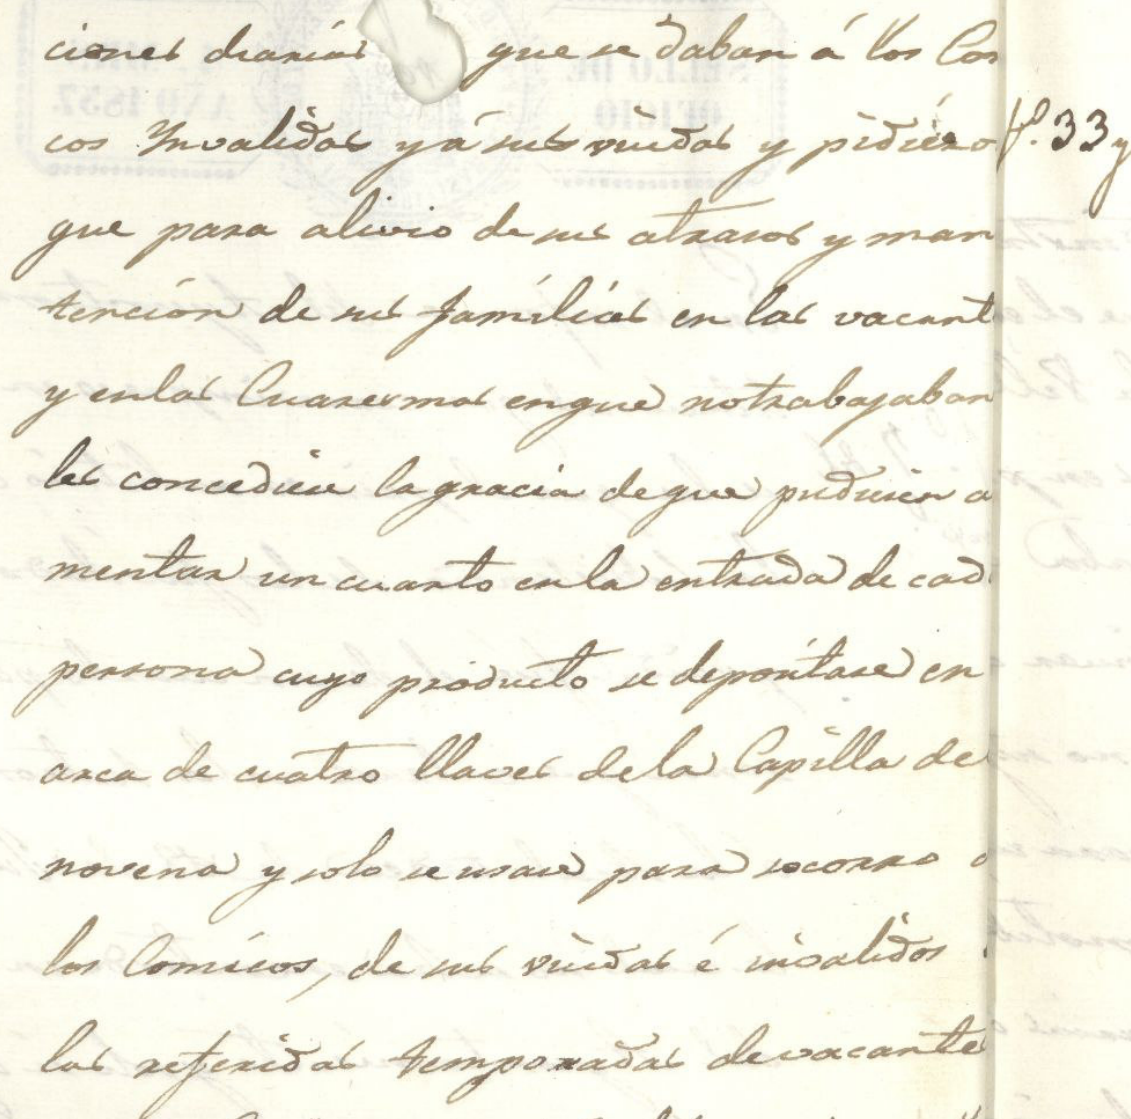 ciones diarias que se daban á los Con
cos Ynvalidos y á sus viudas y pidiéro fº. 33 y
que para alivio de sus atrasos y man
tencion de sus familias en las vacant
y en las Cuaresmas en que no trabajaban
les concediese la gracia de que pudiesen a
mentar un cuarto en la entrada de cad
persona cuyo producto se depositase en
arca de cuatro llaves de la Capilla de
novena y solo se usase para socorro
los Comicos, de sus viudas é invalidos
las referidas temporadas de vacante